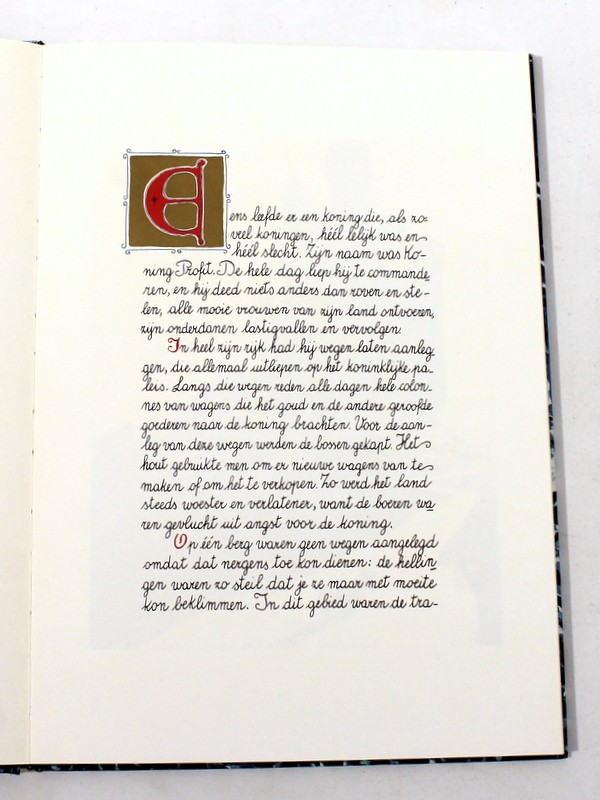 Eens leefde er een koning die, als zo-
veel koningen, héél lelijk was en
héél slecht. Zijn naam was Ko-
ning Profit. De hele dag liep hij te commande
ren, en hij deed niets anders dan roven en ste-
len, alle mooie vrouwen van zijn land ontvoeren,
zijn onderdanen lastigvallen en vervolgen.
In heel zijn rijk had hij wegen laten aanleg
gen, die allemaal uitliepen op het koninklijke pa-
leis. Langs die wegen reden alle dagen hele colon-
nes van wagens die het goud en de andere geroofde
goederen naar de koning brachten. Voor de aan-
leg van deze wegen werden de bossen gekapt. Het
hout gebruikte men om er nieuwe wagens van te
maken of om het te verkopen. Zo werd het land
steeds woester en verlatener, want de boeren wa
ren gevlucht uit angst voor de koning.
Op één berg waren geen wegen aangelegd
omdat dat nergens toe kon dienen: de hellin
gen waren zo steil dat je ze maar met moeite
kon beklimmen. In dit gebied waren de tra-